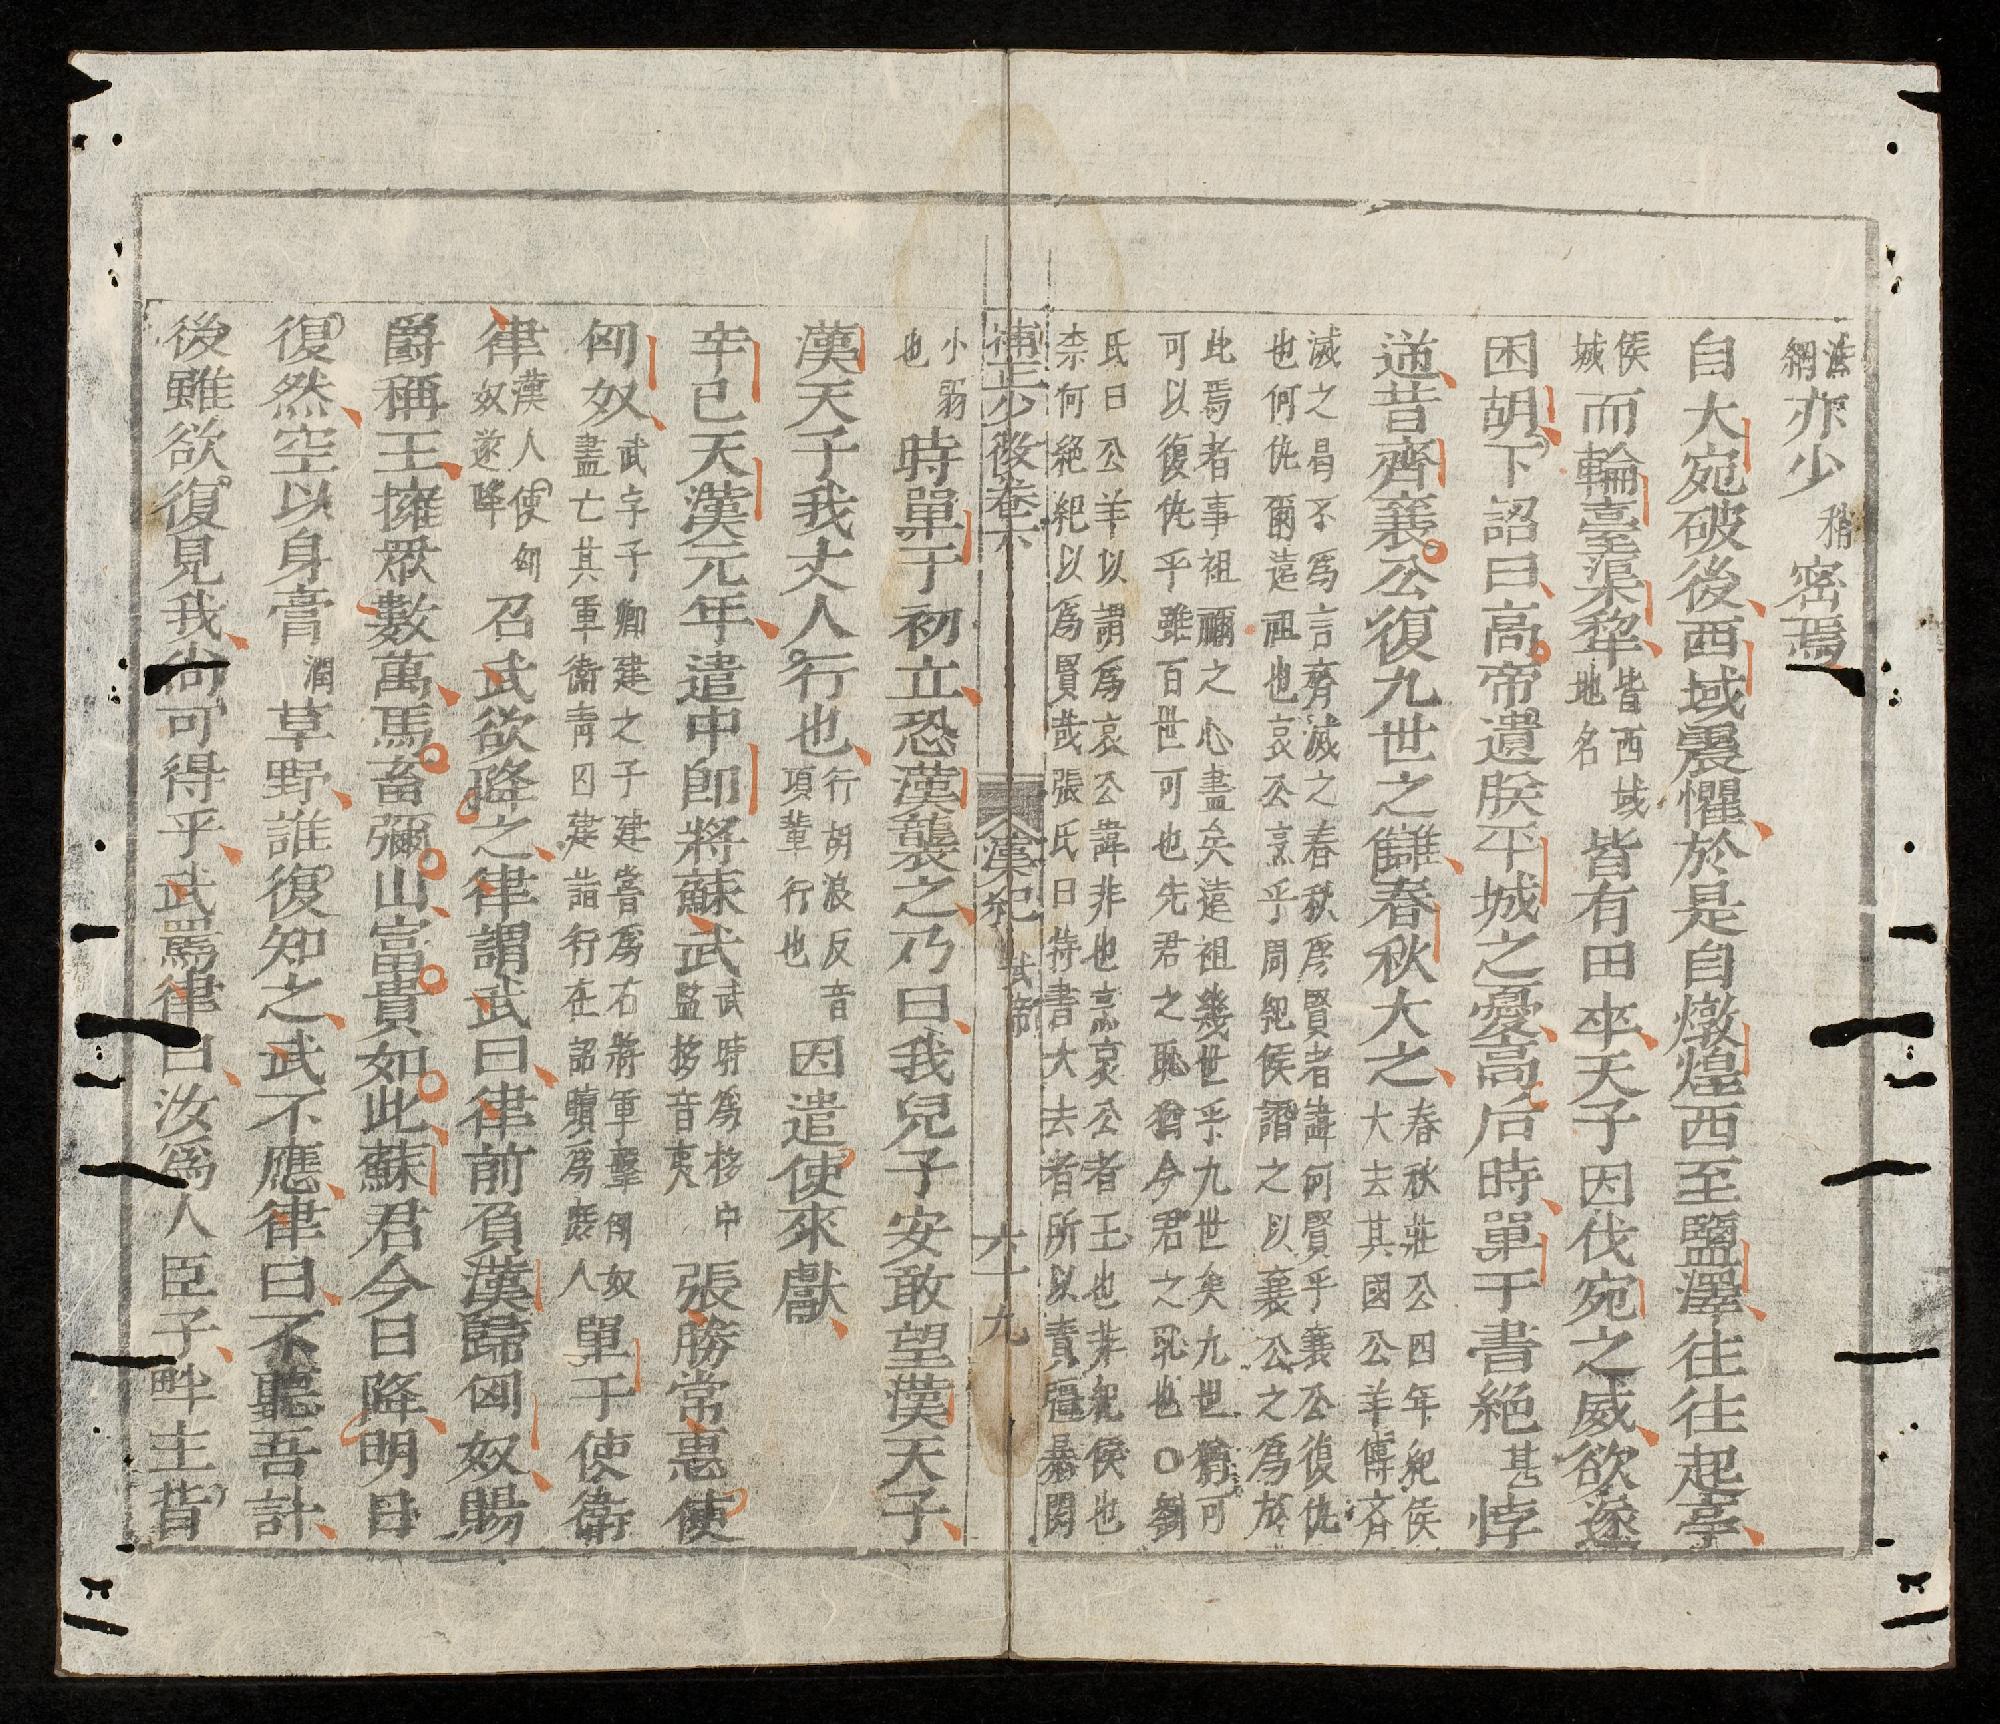 法網亦少稍密焉
自大宛破後西域震懼於是自燉煌西至鹽澤往往起亭
候城而輪臺渠犂皆西域地名皆有田卒天子因伐宛之威欲遂
困胡下詔曰高帝遺朕平城之憂高后時單于書絕甚悖
逆昔齊襄公復九世之讎春秋大之春秋莊公四年紀侯大去其國公羊傳齊
滅之曷不爲言齊滅之春秋爲賢者諱何賢乎襄公復仇
也何仇爾遠祖也哀公烹乎周紀侯譖之以襄公之爲於
此焉者事祖禰之心盡矣遠祖幾世乎九世矣九世猶可
可以復仇乎雖百世可也先君之恥猶今君之恥也○劉
氏曰公羊以謂爲哀公諱非也烹哀公者王也非紀侯也
柰何絕紀以爲賢哉張氏曰特書大去者所以責彊暴閔
補三少微卷六
漢紀 武帝
六十九
小弱也時單于初立恐漢襲之乃曰我兒子安敢望漢天子
漢天子我丈人行也行胡浪反音項輩行也因遣使來獻
辛巳天漢元年遣中郎將蘇武武時爲栘中監栘音夷張勝常惠使
匈奴武字子卿建之子建嘗爲右將軍擊匈奴盡亡其軍衞青囚建詣行在詔贖爲庶人單于使衛
律漢人使匈奴遂降召武欲降之律謂武曰律前負漢歸匈奴賜
爵稱王擁眾數萬馬畜彌山富貴如此蘇君今日降明日
復然空以身膏潤草野誰復知之武不應律曰不聽吾計
後雖欲復見我尙可得乎武罵律曰汝爲人臣子畔主背